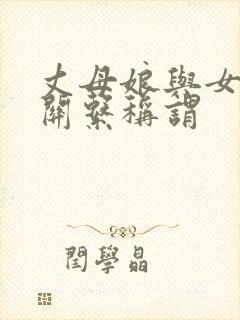 丈母娘與女
關繫稱謂
閆學晶